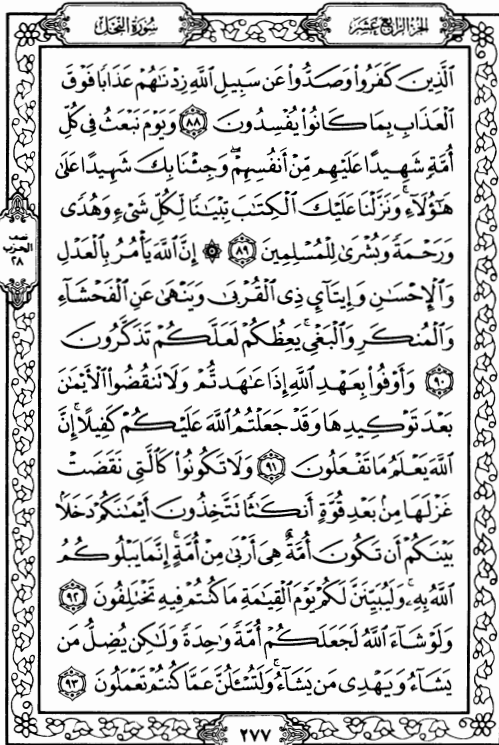 الجزء الرابع عشر
سورة النحل
الَّذِينَ كَفَرُوا۟ وَصَدُّوا۟ عَن سَبِيلِ اللَّهِ زِدْنَٰهُمْ عَذَابًا فَوْقَ
الْعَذَابِ بِمَا كَانُوا۟ يُفْسِدُونَ ٨٨ وَيَوْمَ نَبْعَثُ فِى كُلِّ
أُمَّةٍ شَهِيدًا عَلَيْهِم مِّنْ أَنفُسِهِمْ ۖ وَجِئْنَا بِكَ شَهِيدًا عَلَىٰ
هَٰٓؤُلَآءِ ۚ وَنَزَّلْنَا عَلَيْكَ الْكِتَٰبَ تِبْيَٰنًا لِّكُلِّ شَىْءٍ وَهُدًى
وَرَحْمَةً وَبُشْرَىٰ لِلْمُسْلِمِينَ ٨٩ ۞ إِنَّ اللَّهَ يَأْمُرُ بِالْعَدْلِ
نصف
الحزب
٢٨
وَالْإِحْسَٰنِ وَإِيتَآئِ ذِى الْقُرْبَىٰ وَيَنْهَىٰ عَنِ الْفَحْشَآءِ
وَالْمُنكَرِ وَالْبَغْىِ ۚ يَعِظُكُمْ لَعَلَّكُمْ تَذَكَّرُونَ
٩٠ وَأَوْفُوا۟ بِعَهْدِ اللَّهِ إِذَا عَٰهَدتُّمْ وَلَا تَنقُضُوا۟ الْأَيْمَٰنَ
بَعْدَ تَوْكِيدِهَا وَقَدْ جَعَلْتُمُ اللَّهَ عَلَيْكُمْ كَفِيلًا ۚ إِنَّ
اللَّهَ يَعْلَمُ مَا تَفْعَلُونَ ٩١ وَلَا تَكُونُوا۟ كَالَّتِى نَقَضَتْ
غَزْلَهَا مِنۢ بَعْدِ قُوَّةٍ أَنكَٰثًا تَتَّخِذُونَ أَيْمَٰنَكُمْ دَخَلًۢا
بَيْنَكُمْ أَن تَكُونَ أُمَّةٌ هِىَ أَرْبَىٰ مِنْ أُمَّةٍ ۚ إِنَّمَا يَبْلُوكُمُ
اللَّهُ بِهِۦ ۚ وَلَيُبَيِّنَنَّ لَكُمْ يَوْمَ الْقِيَٰمَةِ مَا كُنتُمْ فِيهِ تَخْتَلِفُونَ ٩٢
وَلَوْ شَآءَ اللَّهُ لَجَعَلَكُمْ أُمَّةً وَٰحِدَةً وَلَٰكِن يُضِلُّ مَن
يَشَآءُ وَيَهْدِى مَن يَشَآءُ ۚ وَلَتُسْـَٔلُنَّ عَمَّا كُنتُمْ تَعْمَلُونَ ٩٣
٢٧٧